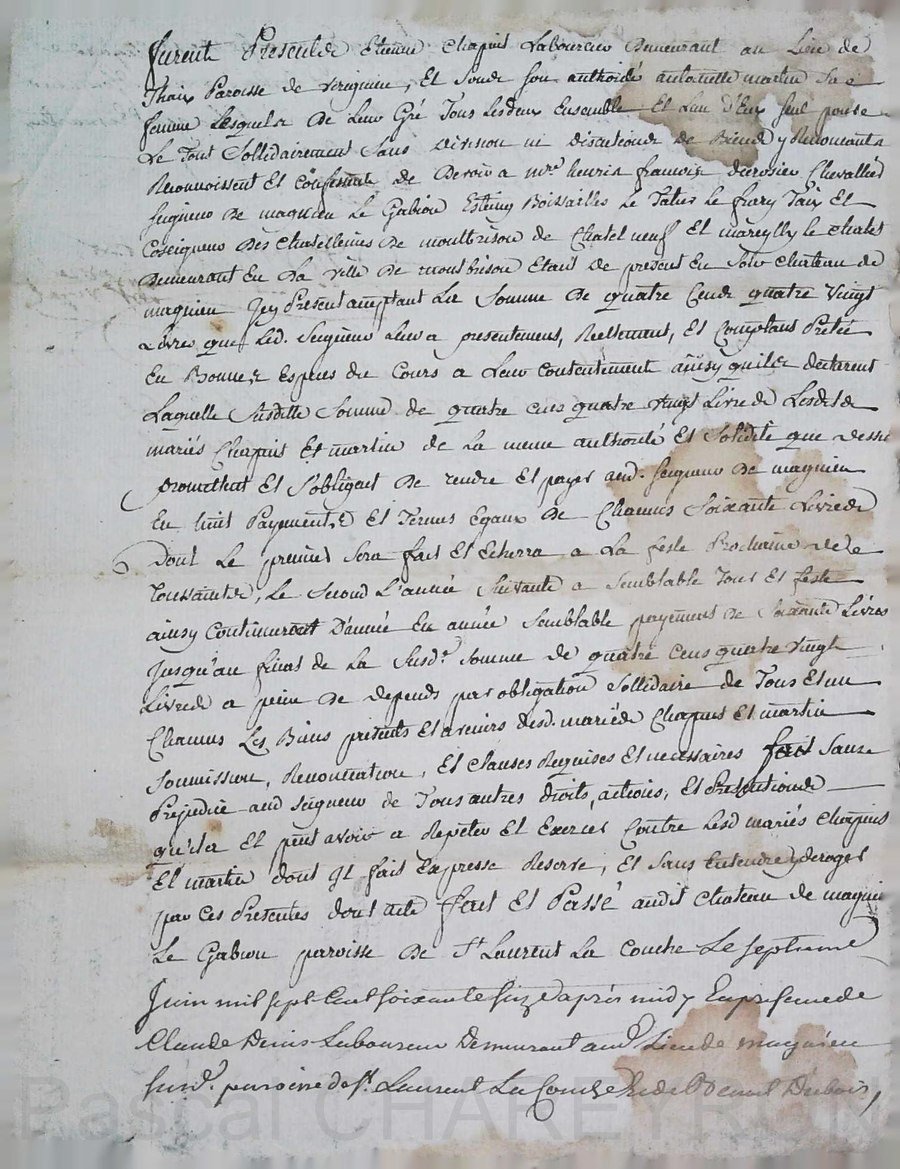 furent Presents Etienne Chapuis Laboureur Demeurant au Lieu de
Thaix Paroisse de Verignieu, Et sous son authorité antoinette martin sa
femme Lesquels De Leur Gré Tous Lesdeux Ensemble Et L'un D'Eux seul pour
Le Tout Sollidairement Sans Division ni Discutions de Biens y Renonçant
Reconnoissent Et Confessent de Devoir a mre henrix françois Durosier Chevallier
seigneur De magnieu Le Gabion Estaing Boissailles Le Tatier Le fiary Taix Et
Coseigneur Des Chatellenies De montbrison de Chatel neuf Et mareylly le chatel
Demeurant En La ville De montbrison Etant de present En Son Chateau de
magnieu Jcy Present acceptant La Somme De quatre Cens quatre Vingt
Livres que Led. Seigneur Leur a presentement, Reellement, Et Comptant Preté
En Bonnes Especes du Cours a Leur Contentement ainsy qu'ils declarent
Laquelle Susditte Somme de quatre cens quatre Vingt Livres Lesdits
mariés Chapuis Et martin de La meme authorité Et Solidité que dessus
promettent Et S'obligent De rendre Et payer aud. Seigneur De magnieu
En huit Payments Et Termes Egaux De Chacuns Soixante Livres
Dont Le premier Sera fait Et Echerra a La feste Prochaine de
Toussaints, Le Second L'année Suivante a Semblable Jour Et feste
ainsy Continuront D'année En année Semblable payement De Soixante Livres
Jusqu'au finat de La Susd.e Somme de quatre Cens quatre Vingt
Livres a peine De depends par obligation Sollidaire de Tous Et un
Chacuns Les Biens presents Et avenirs desd. mariés Chapuis Et martin
Soumission, Renontiation, Et Clauses Requises Et necessaires fait Sans
Prejudice aud Seigneur de Tous autres droits, actions, Et Pretentions
qu'il a Et peut avoir a Repeter Et Exercer Contre Lesd mariés Chapuis
Et martin dont Jl fait Expresse Reserve, Et Sans Entendre y deroger
par Ces Presentes dont acte fait Et Passé audit Chateau de magnieu
Le Gabion paroisse De St Laurent La Conche Le Septieme
Juin mil sept Cent soixante seize après midy En presence de
Claude Denis Laboureur Demeurant aud. Lieu de magnieu
susd. paroisse de st. Laurent La Conche Et de Benoit Dubois,
Pascal CHAREYRON